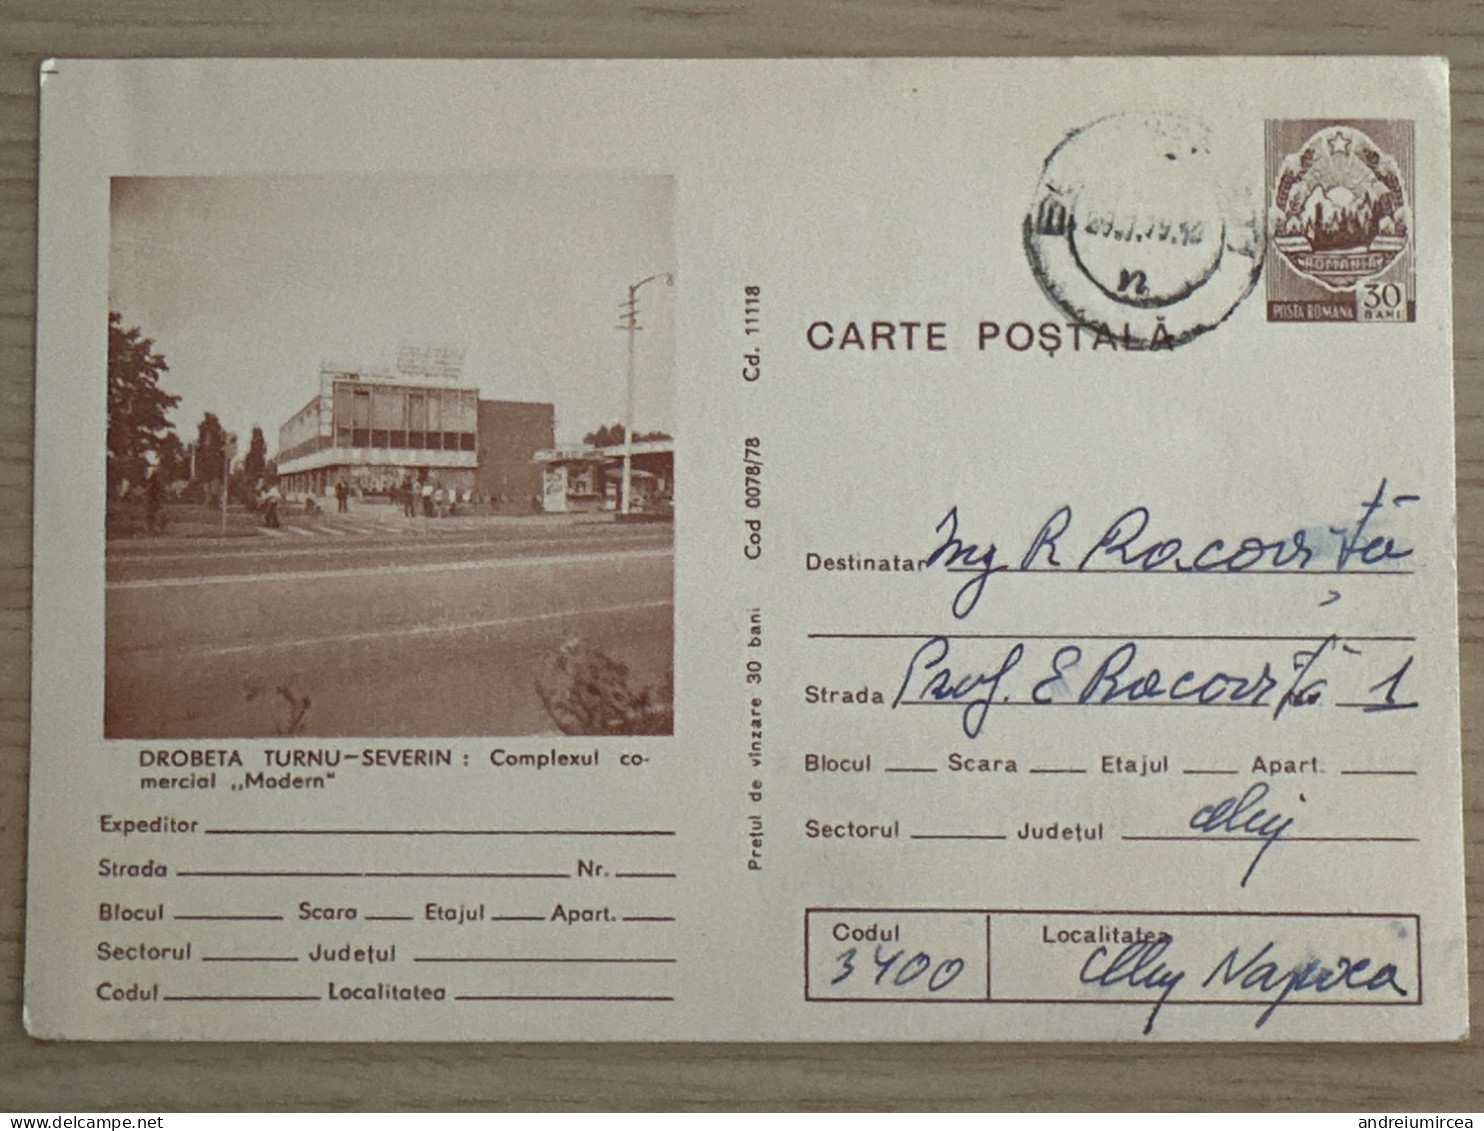 ROMANIA
POSTA ROMANA
30
BANI
29.7.79.18
n
CARTE POȘTALĂ
Prețul de vînzare 30 bani Cod 0078/78 Cd. 11118
DROBETA TURNU-SEVERIN : Complexul co-
mercial „Modern"
Expeditor
Strada Nr.
Blocul Scara Etajul Apart.
Sectorul Județul
Codul Localitatea
Destinatar Ing R Racoviță
Strada Prof. E Racoviță 1
Blocul Scara Etajul Apart.
Sectorul Județul Cluj
Codul Localitatea
3400 Cluj Napoca
www.delcampe.net
andreiumircea